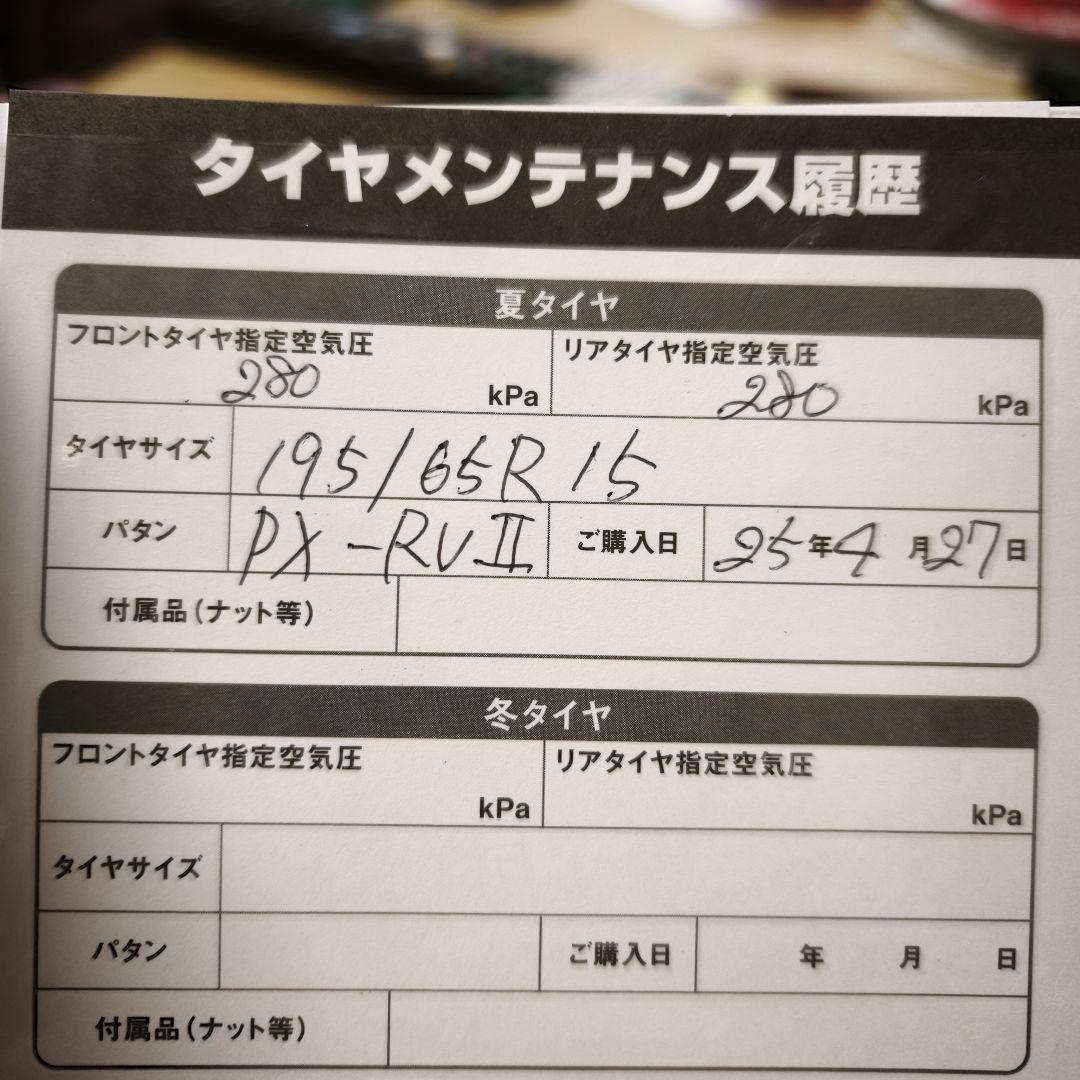 タイヤメンテナンス履歴
夏タイヤ
フロントタイヤ指定空気圧
280 kPa
リアタイヤ指定空気圧
280 kPa
タイヤサイズ 195/65R 15
パタン PX-RVII ご購入日 25年4月27日
付属品(ナット等)
冬タイヤ
フロントタイヤ指定空気圧
kPa
リアタイヤ指定空気圧
kPa
タイヤサイズ
パタン ご購入日 年 月 日
付属品(ナット等)